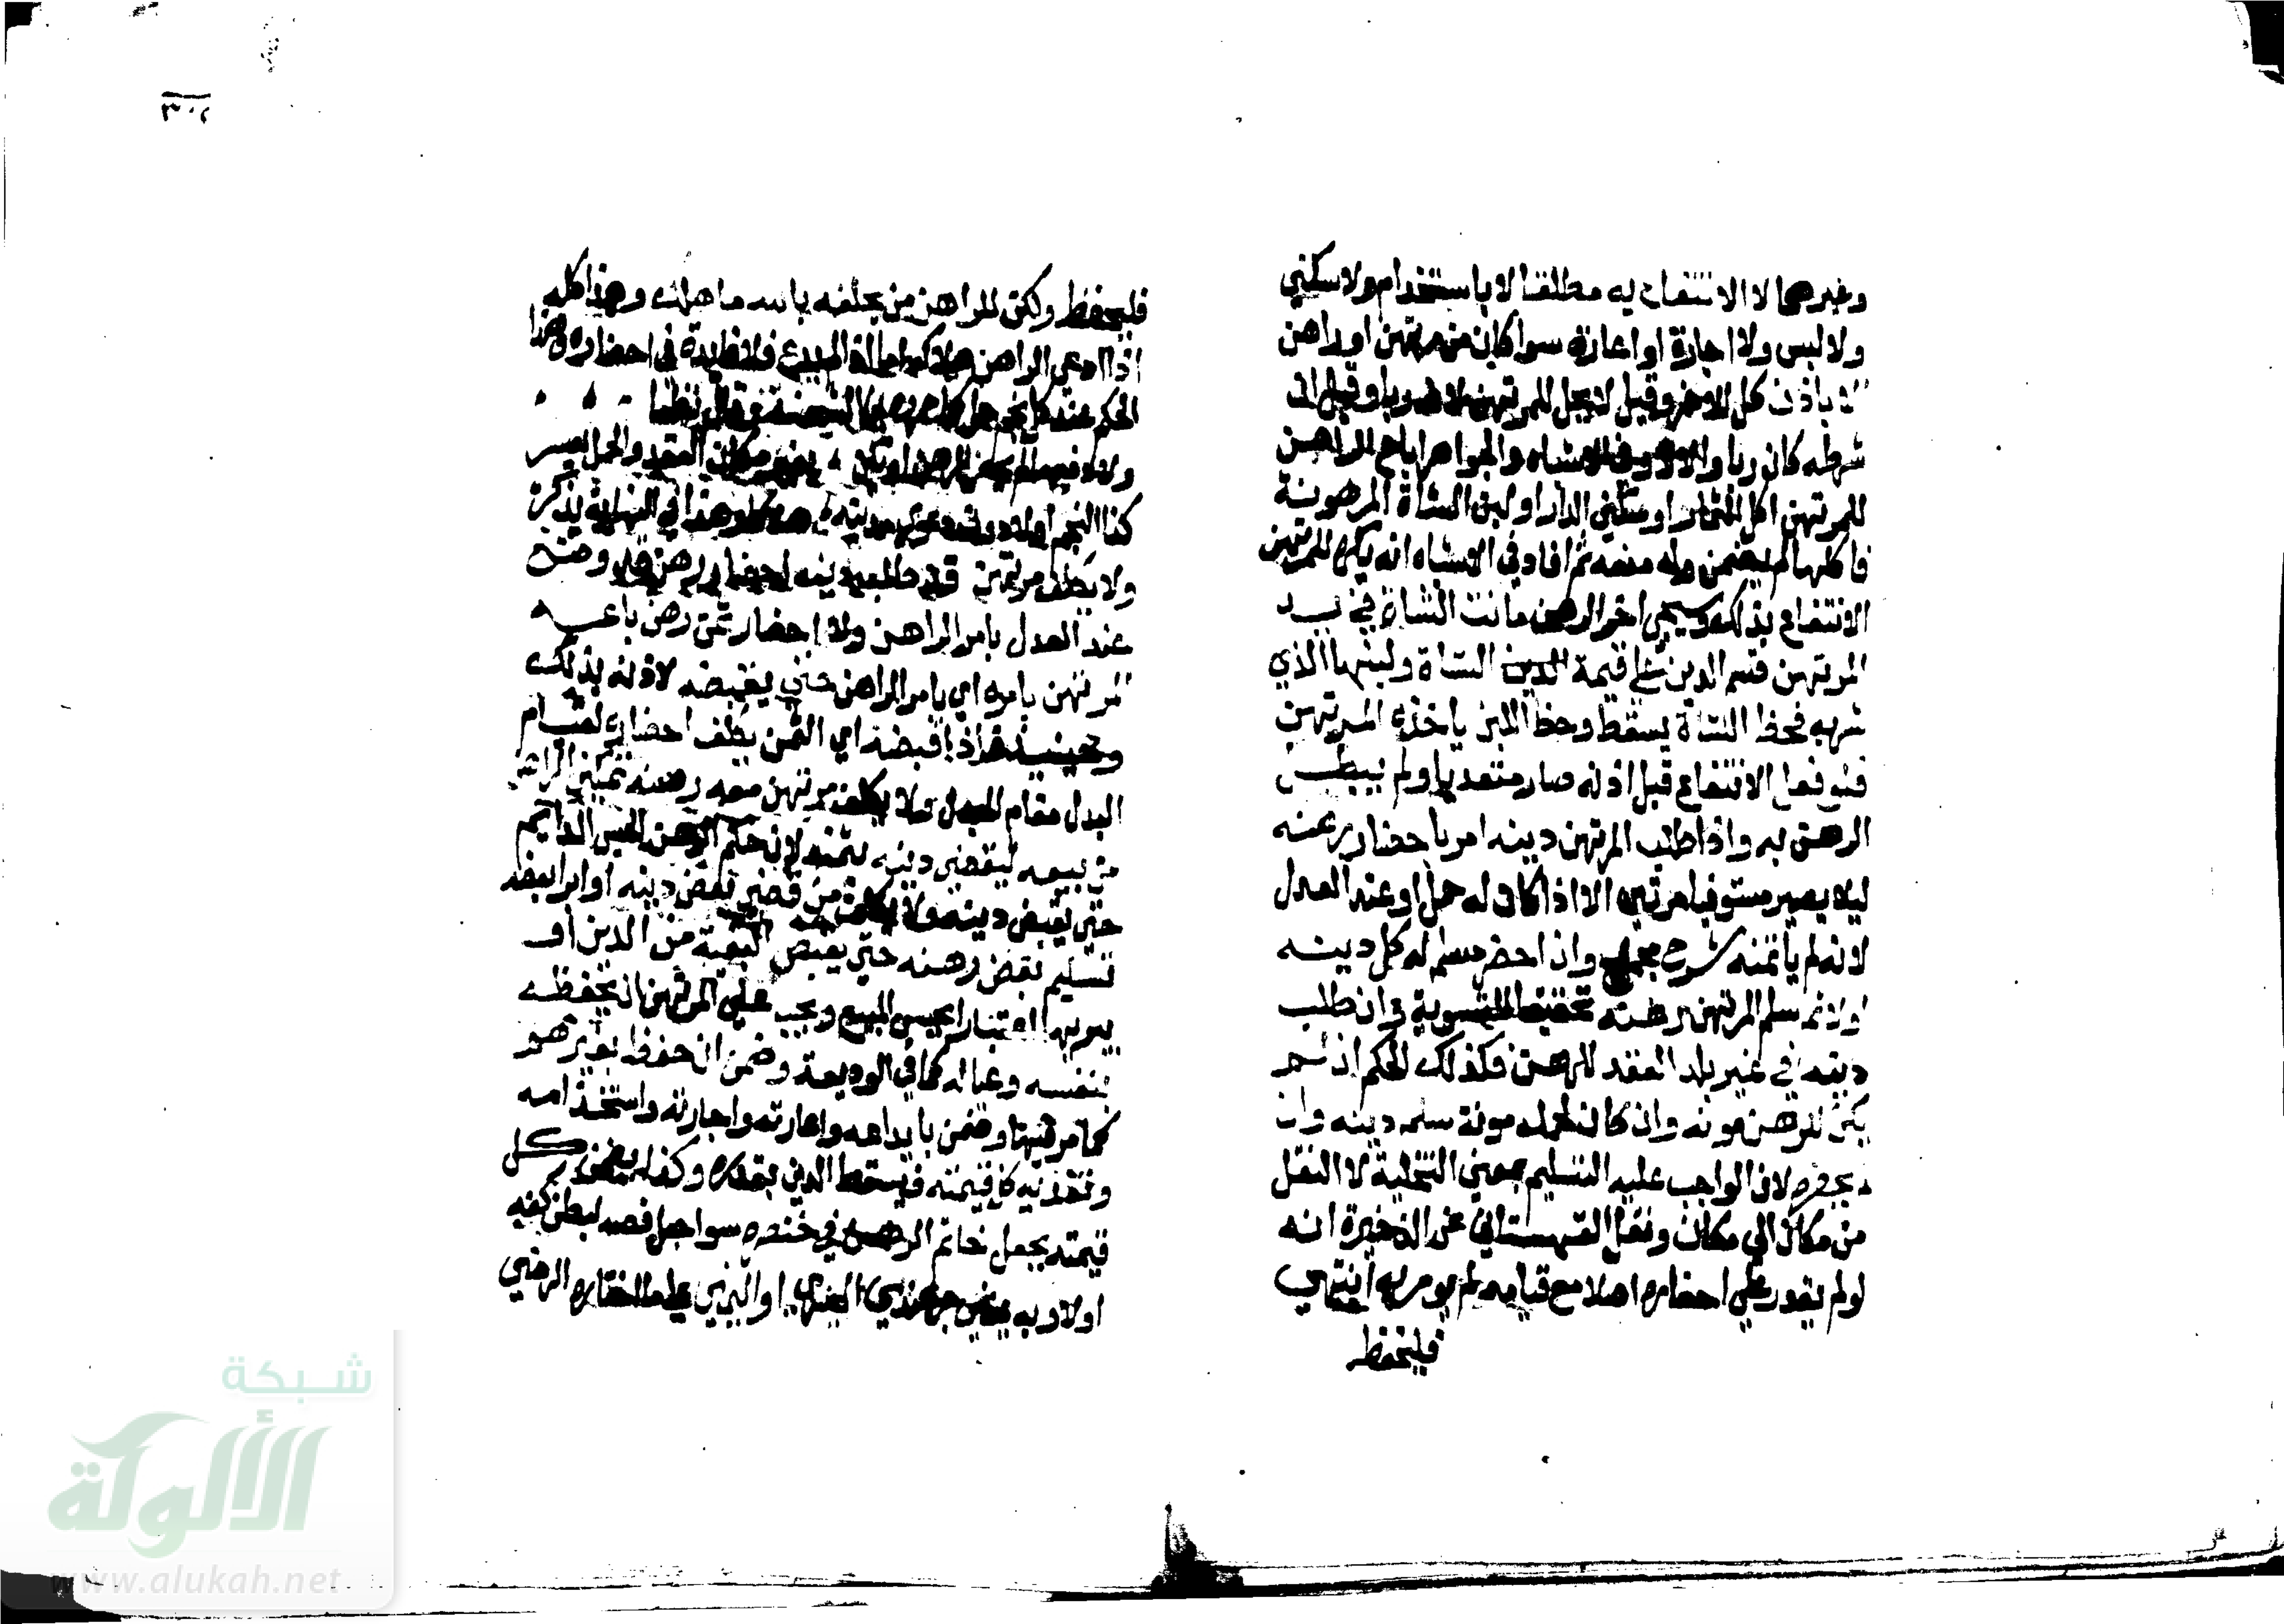 وغيرهما لا الانتفاع به مطلقا لا باستخدام ولا سكني
ولا لبس ولا اجارة او اعارة سوا كان من مرتهن او راهن
الا باذن كل للاخر وقيل لا يحل للمرتهن لانه ربا وقيل ان
شرطه كان ربا والا لا وفي الاشباه والجواهر اباح الراهن
للمرتهن اكل الثمار او سكني الدار او لبن الشاة المرهونة
فاكلها لم يضمن وله منعه ثم افاد في الاشباه انه يكره للمرتهن
الانتفاع بذلك وسيجي اخر الرهن ماتت الشاة في يد
المرتهن قسم الدين علي قيمة الشاة ولبنها الذي
شربه فحظ الشاة يسقط وحظ اللبن ياخذه المرتهن
فلو فعل الانتفاع قبل اذنه صار متعديا ولم يبطل
الرهن به واذا طلب المرتهن دينه امر باحضار رهنه
ليلا يصير مستوفيا مرتين الا اذا كان له حمل او عند العدل
لانه لم ياتمنه شرح مجمع وان احضر سلم له كل دينه
اولا ثم سلم المرتهن رهنه تحقيقا للتسوية فان طلب
دينه في غير بلد العقد للرهن فكذلك الحكم ان لم
يكن للرهن مونة وان كان لحمله مونة سلم دينه وان
لم يحضره لان الواجب عليه التسليم بمعني التخلية لا النقل
من مكان الي مكان ونقل القهستاني عن الذخيرة انه
لو لم يقدر علي احضاره اصلا مع قيامه لم يومر به انتهي
فليحفظ
٣٠٢
فليحفظ ولكن للراهن من يحلفه بالله ما هلك وهذا كله
اذا ادعي الراهن هلاكه اما لا فلا فايدة في احضاره وكذا
الحكم عند كل نجم حل
كذا النجم وهذا في النهاية يذكر
ولا يكلف مرتهن قد طلب دينه احضار رهن قد وضع
عند العدل بامر الراهن ولا احضار ثمن رهن باعه
المرتهن بامره اي بامر الراهن حتي يقبضه لاذنه بذلك
وحينيذ اذا قبضه اي الثمن يكلف احضاره لقيام
البدل مقام المبدل ولا يكلف مرتهن معه رهنه تمكين الراهن
من بيعه ليقضي دينه بثمنه لان حكم الرهن الحبس الدايم
حتي يقبض دينه ولا يكلف من قضي بعض دينه او ابرا بعضه
تسليم بعض رهنه حتي يقبض البقية من الدين او
يبريها اعتبارا بحبس المبيع ويجب علي المرتهن ان يحفظه
بنفسه وعياله كما في الوديعة وضمن ان حفظ بغيرهم
كما مر فيها وضمن بايداعه واعارته واجارته واستخدامه
وتعديه كل قيمته فيسقط الدين بقدره وكذا يضمن كل
قيمته بجعل خاتم الرهن في خنصره سوا جعل فصه لبطن كفه
اولا وبه اليمني او اليسري علي ما اختاره الرضي
شبكة
الألوكة
www.alukah.net